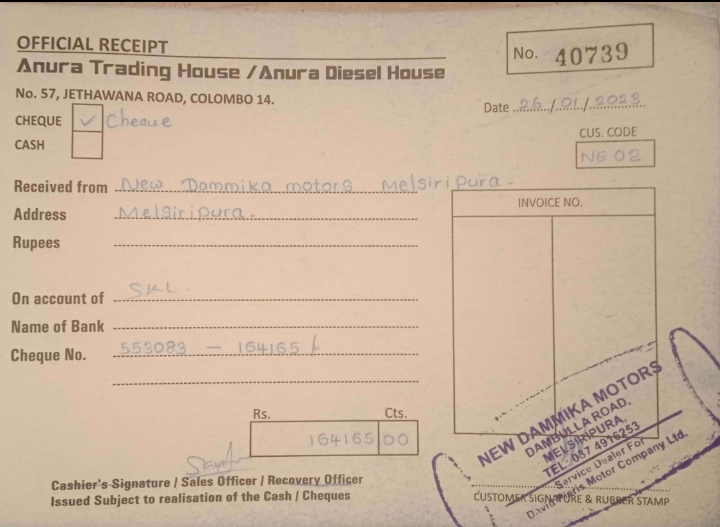 OFFICIAL RECEIPT
No. 40739
Anura Trading House / Anura Diesel House
No. 57, JETHAWANA ROAD, COLOMBO 14.
Date 26/01/2023
CHEQUE ✓ Cheaue
CASH
CUS. CODE
NE 02
Received from New Dammika motors Melsiripura.
Address Melsiripura.
Rupees
INVOICE NO.
On account of SKL.
Name of Bank
Cheque No. 553083 - 164165/
Rs. Cts.
164165 00
NEW DAMMIKA MOTORS
DAMBULLA ROAD,
MELSIRIPURA,
TEL: 037 4916253
Service Dealer For
David Pieris Motor Company Ltd.
Cashier's Signature / Sales Officer / Recovery Officer
Issued Subject to realisation of the Cash / Cheques
CUSTOMER SIGNATURE & RUBBER STAMP